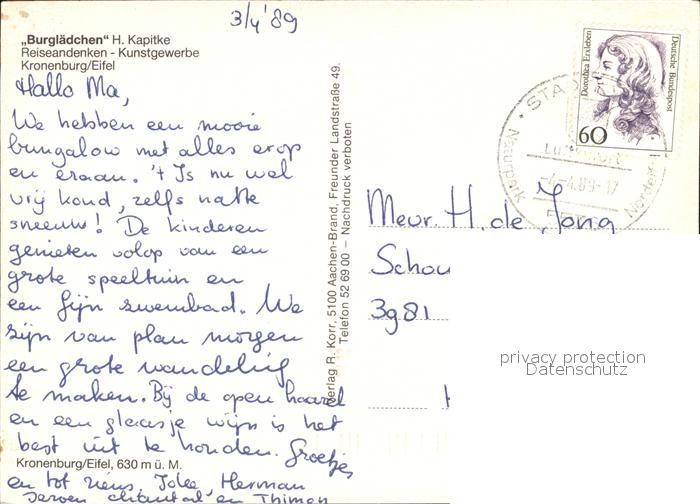 3/4 '89
„Burglädchen" H. Kapitke
Reiseandenken - Kunstgewerbe
Kronenburg/Eifel
Hallo Ma,
We hebben een mooie
bungalow met alles erop
en eraan. 't Is nu wel
vrij koud, zelfs natte
sneeuw! De kinderen
genieten volop van een
grote speeltuin en
een fijn zwembad. We
zijn van plan morgen
een grote wandeling
te maken. Bij de open haard
en een glaasje wijn is het
best uit te houden. Groetjes
Kronenburg/Eifel, 630 m ü. M.
en tot ziens, Joke Herman
Jeroen Chantal en Thimon
erlag R. Korr, 5100 Aachen-Brand, Freunder Landstraße 49.
Telefon 52 69 00 – Nachdruck verboten
Dorothea Erxleben
Deutsche Bundespost
60
STA
Naturpark
Nordeifel
-4.-4.89-17
Mevr. H. de Jong
Schou
3981
privacy protection
Datenschutz